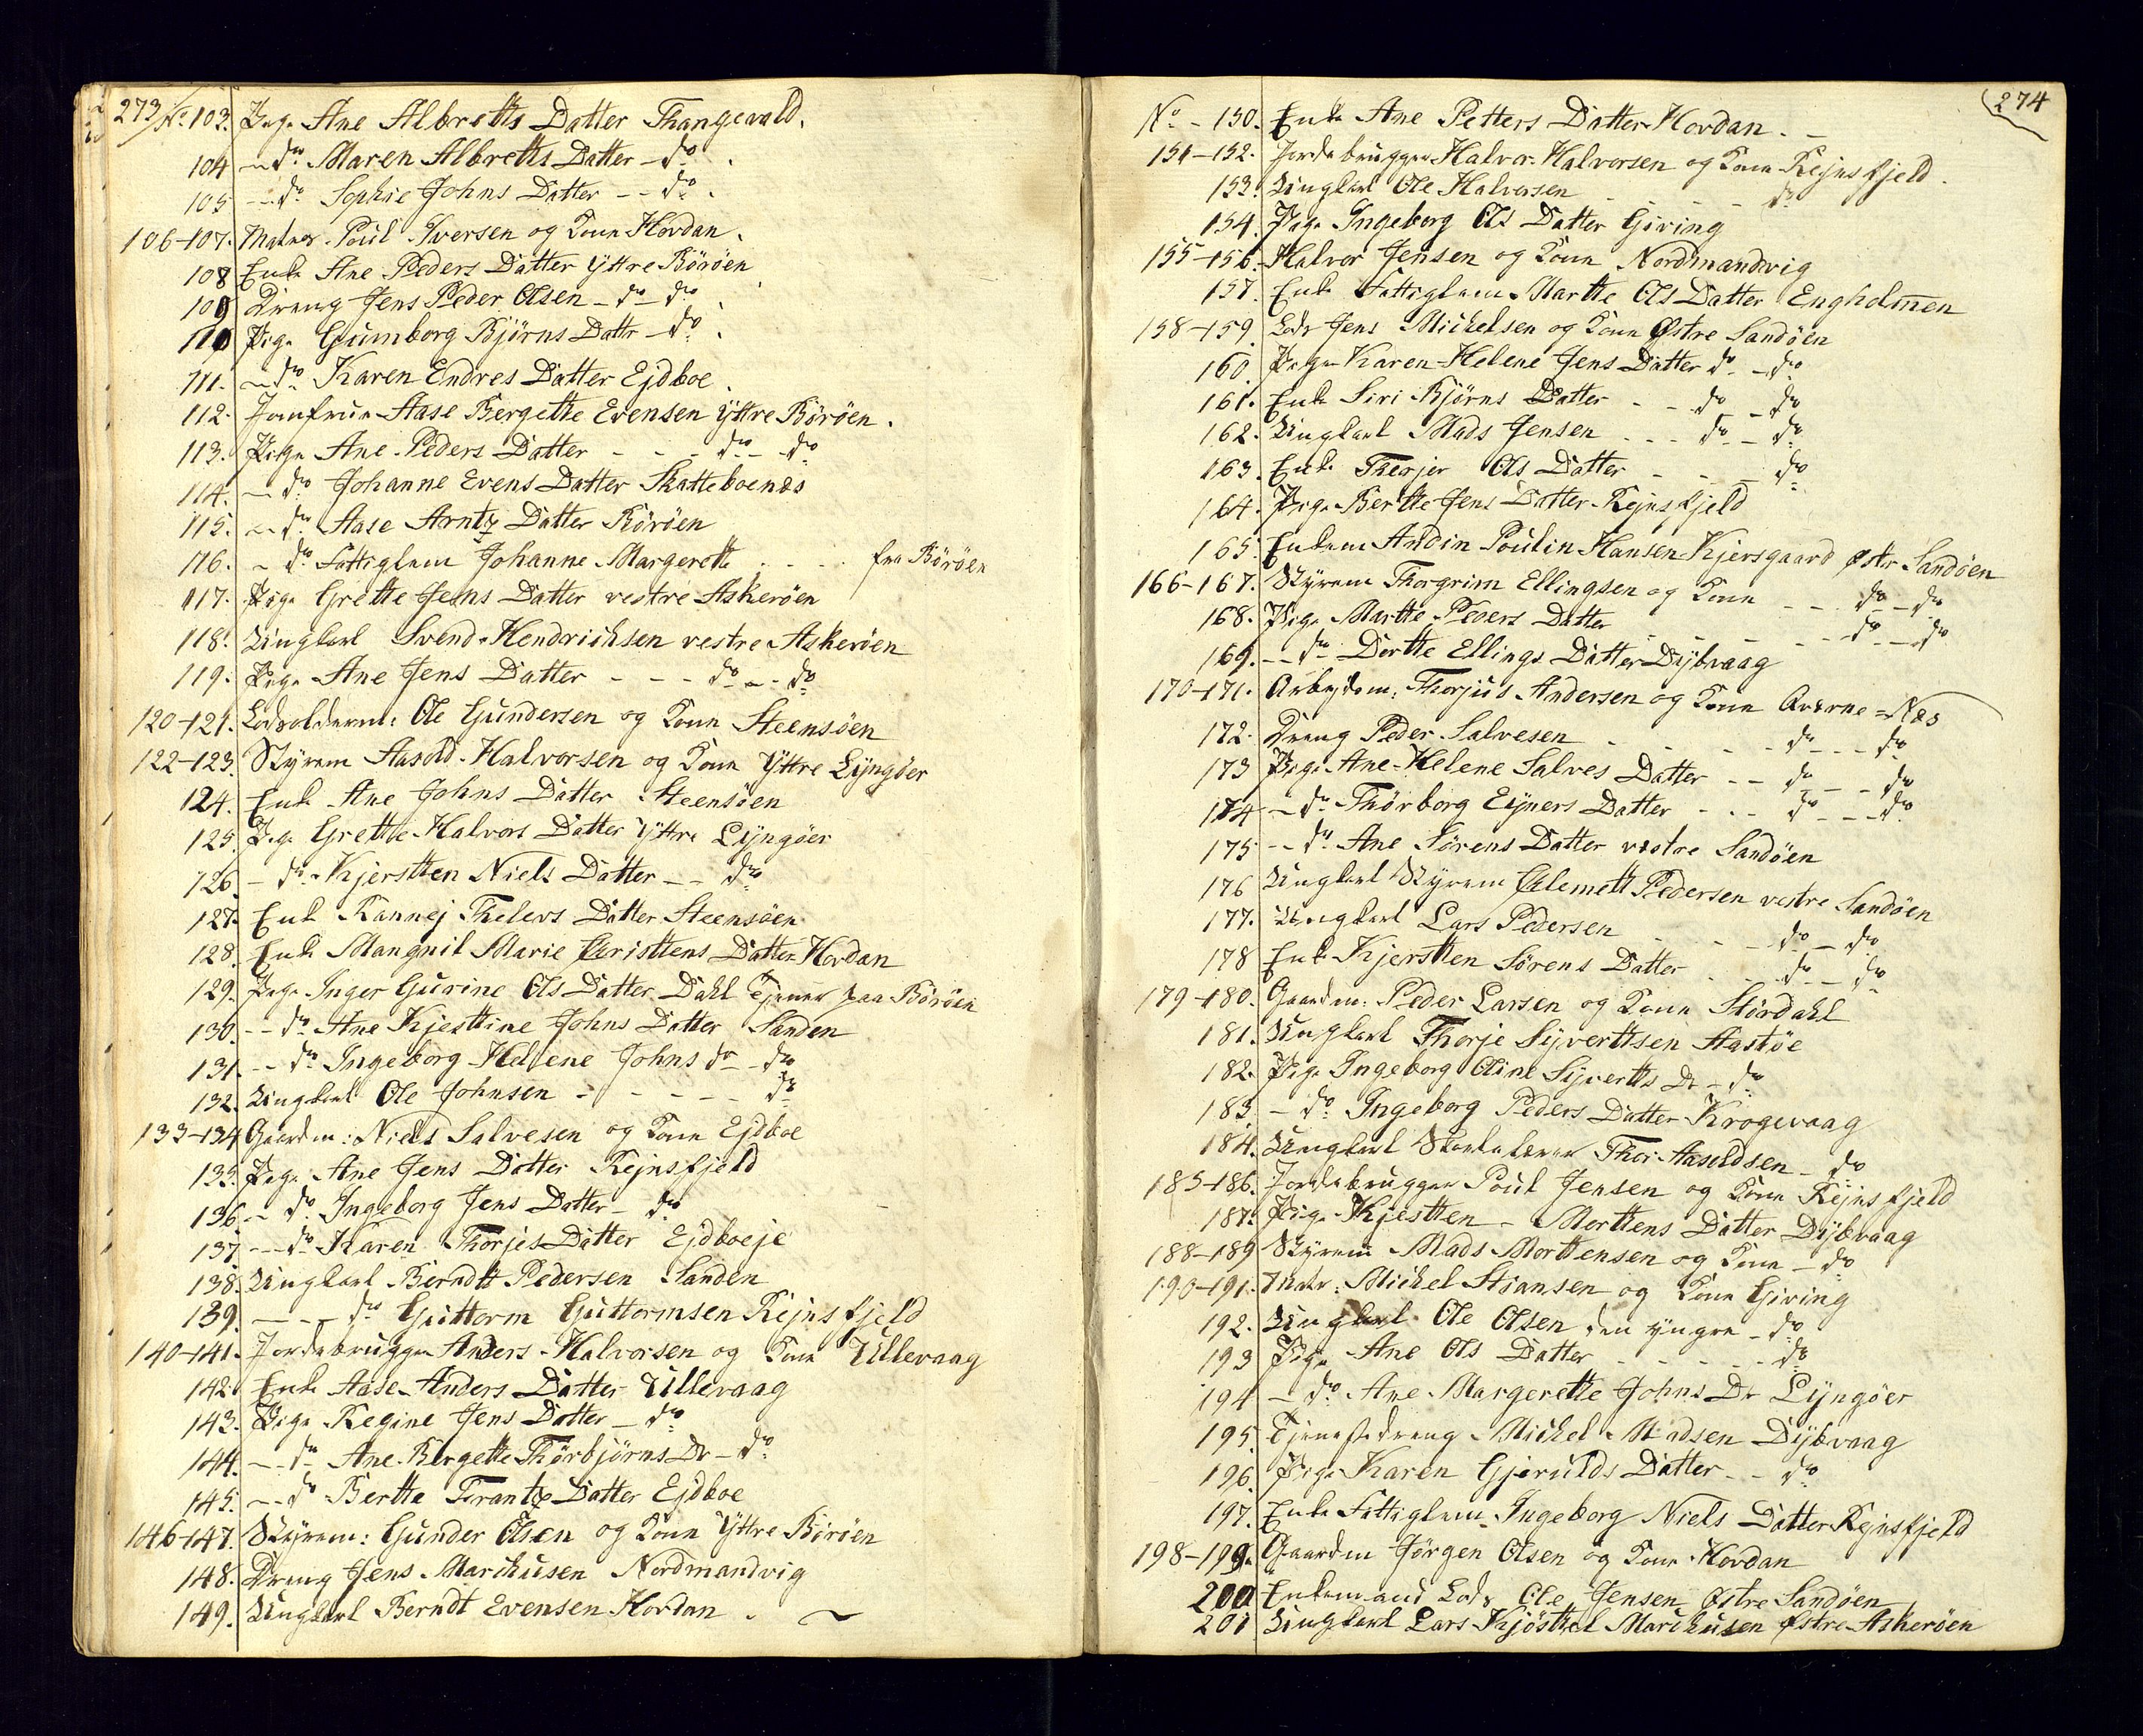 273
No. 103. Pige Ane Albretts Datter Thangevald.
104 - do Maren Albretts Datter - do.
105 - do Sophie Johns Datter - - do.
106-107. Matros. Poul Iversen og Kone Hovdan.
108 Enke Ane Peders Datter Yttre Böröen
109 Dreng Jens Peder Olsen - do - do
110 Pige Gumborg Björns Dattr - do.
111. - do Karen Endres Datter Ejdboe.
112. Jomfrue Aase Bergette Evensen Yttre Böröen.
113. Pige Ane Peders Datter - - - do - do
114. - do Johanne Evens Datter Skatteboenæs
115. - do Aase Arntz Datter Böröen
116. - do Fattiglem Johanne Margerette . . . . fra Böröen
117. Pige Grette Jens Datter vestre Askeröen
118. Ungkarl Svend Hendrichsen vestre Askeröen
119. Pige Ane Jens Datter - - - do - - do
120-121. Lodsolderm: Ole Gundersen og Kone Steensöen
122-123. Styrem Aasold Halvorsen og Kone Yttre Lyngöer
124. Enke Ane Johns Datter Steensöen
125. Pige Grette Halvors Datter Yttre Lyngöer
126. - do. Kjerstten Niels Datter - - do
127. Enke Rannej Thelevs Datter Steensöen
128. Enke Mangnil Marie Christtens Datter Hovdan
129. Pige Inger Gurine Ols Datter Dahl Tjener paa Böröen
130. - - do Ane Kjesttine Johns Datter Sanden
131. - - do Ingeborg Helene Johns do - do
132. Ungkarl Ole Johnsen - - - - - do
133-134 Gaardm: Niels Salvesen og Kone Ejdboe
135. Pige Ane Jens Datter Rejnsfjeld
136. - do Ingeborg Jens Datter - do
137. - - do Karen Thorjes Datter Ejdboeje
138. Ungkarl Berndtt Pedersen Sanden
139. - - - do Guttorm Guttormsen Rejnsfjeld
140-141. Jordebrugger Anders Halvorsen og Kone Ullevaag
142. Enke Aase Anders Datter Ullevaag
143. Pige Regine Jens Datter - do
144. - - do Ane Bergette Thörbjörns Dr - do
145. - - do Bertte Frantz Datter Ejdboe
146-147. Styrem: Gunder Olsen og Kone Yttre Böröen
148. Dreng Jens Marchusen Nordmandvig
149. Ungkarl Berndt Evensen Hovdan.
274
No - 150. Enke Ane Petters Datter Hovdan. -
151-152. Jordebrugger Halvor Halvorsen og Kone Rejnsfjeld.
153. Ungkarl Ole Halvorsen - - - - do
154. Pige Ingeborg Ols Datter Giving
155-156. Halvor Jensen og Kone Nordmandvig
157. Enke Fattiglem Martte Ols Datter Engholmen
158-159. Lods Jens Michelsen og Kone Østre Sandöen
160. Pige Karen Helene Jens Datter do - do
161. Enke Siri Björns Datter - - do - do
162. Ungkarl Mads Jensen - - - do - do
163. Enke Therjer Ols Datter - - - do
164. Pige Bertte Jens Datter Rejnsfjeld
165. Enkem Andin Poulin Hansen Kjersgaard Østr Sandöen
166-167. Styrem Thorgrim Ellingsen og Kone - - do - do
168. Pige Martte Peders Datter - - - do - - do
169. - - do Dortte Ellings Datter Dybvaag
170-171. Arbejdsm: Thorjus Andersen og Kone Qværne=Næs
172. Dreng Peder Salvesen - - - do - - do
173 Pige Ane Helene Salves Datter - - do - - do
174 - do Thörborg Ejners Datter - - do - - do
175 - - do Ane Sörens Datter vestre Sandöen
176 Ungkarl Styrem Clemett Pedersen vestre Sandöen
177. Ungkarl Lars Pedersen - - - do - do
178 Enke Kjerstten Sörens Datter - - do - do
179-180. Gaardm: Peder Larsen og Kone Stördahl
181. Ungkarl Thorje Syverttsen Aastöe
182. Pige Ingeborg Oline Syvertts Dr - do
183. - do Ingeborg Peders Datter Krogevaag
184. Ungkarl Skolelærer Thor Aasoldsen - do
185-186. Jordebrugger Poul Jensen og Kone Rejnsfjeld
187. Pige Kjestten Morttens Datter Dybvaag
188-189 Styrem Mads Morttensen og Kone - do
190-191. Matr: Michel Stiansen og Kone Giving
192. Ungkarl Ole Olsen den yngre - do
193 Pige Ane Ols Datter - - - - do
194 - do Ane Margerette Johns Dr Lyngöer
195 Tjenestedreng Michel Madsen Dybvaag
196. Pige Karen Gjerulds Datter - - do
197. Enke Fattiglem Ingeborg Niels Datter Rejnsfjeld
198-199. Gaardm Jörgen Olsen og Kone Hovdan
200 Enkemand Lods Ole Jensen Østre Sandöen
201 Ungkarl Lars Kjösttel Marchusen Østre Askeröen